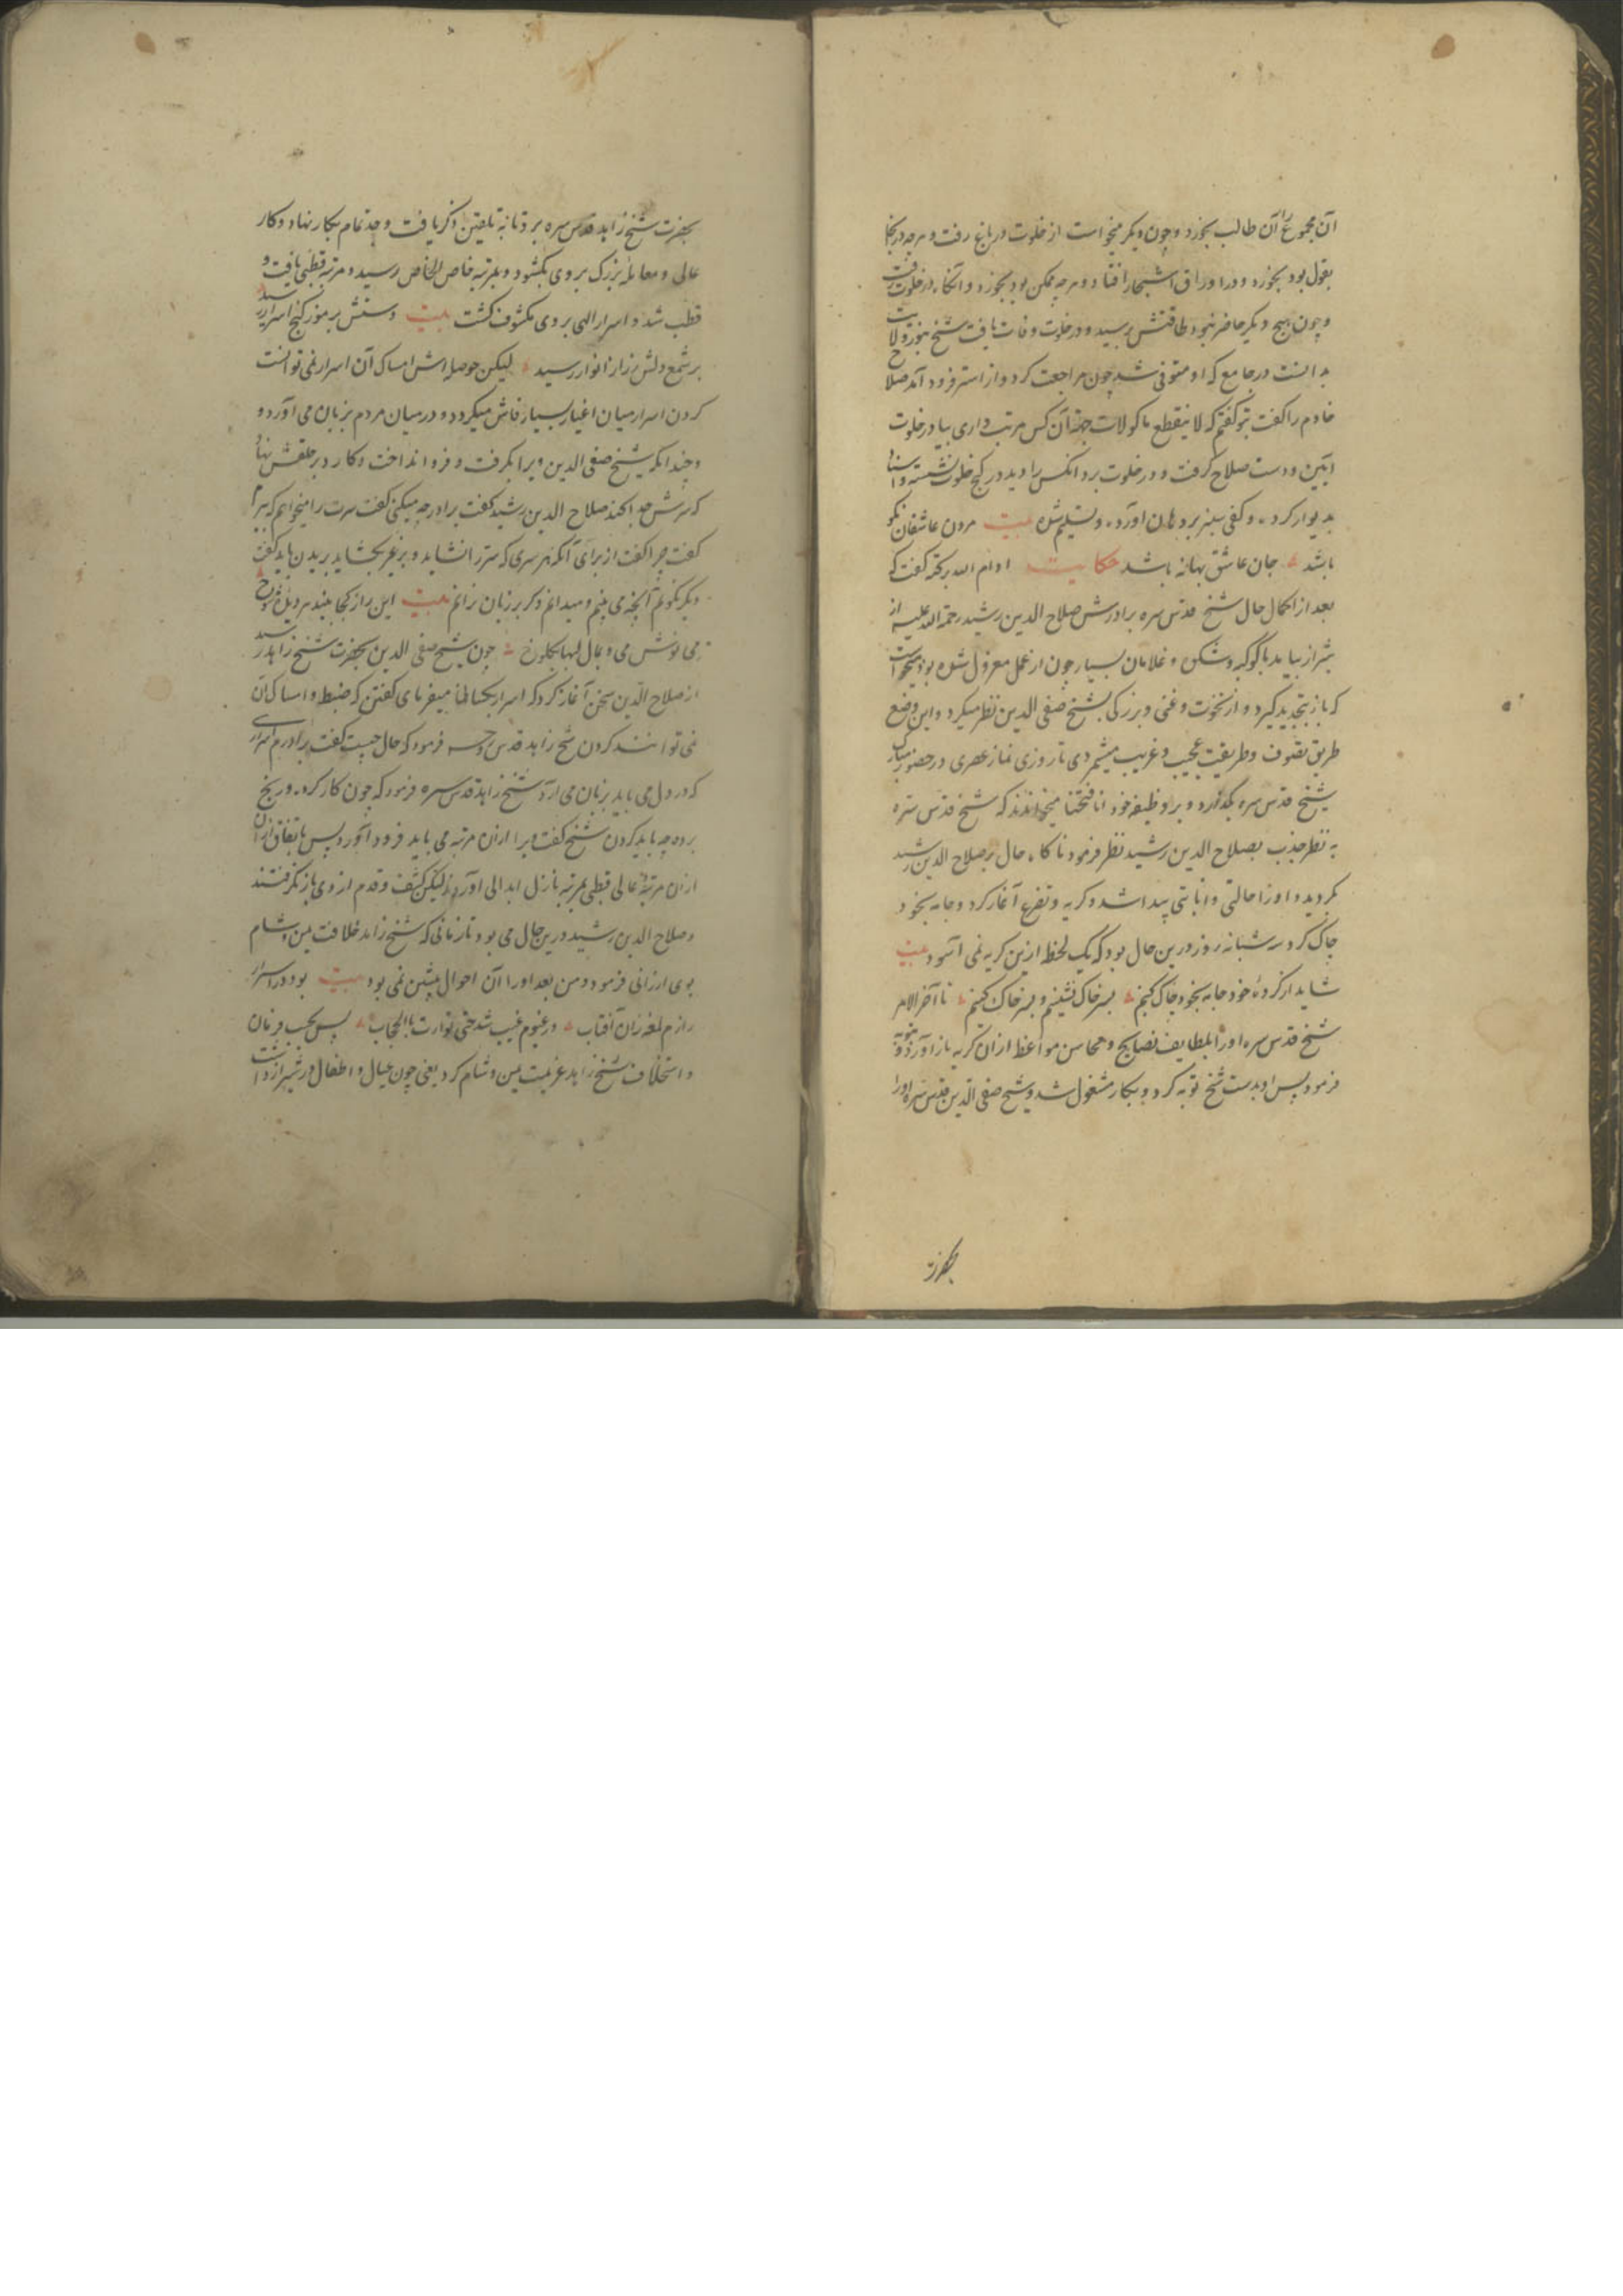 آن مجموع را آن طالب بخورد و چون دیگر میخواست از خلوت در باغ رفت و هرچه در آنجا
بقول بود بخورد و در اوراق اشجار افتاد و هرچه ممکن بود بخورد و آنگاه در خلوت رفت
و چون هیچ دیگر حاضر نبود طاقتش برسید و در خلوت وفات یافت شیخ بنور ولایت
بدانست در جامع که او متوفی شد چون مراجعت کرد و از استر فرود آمد صلاح
خادم را گفت بتو گفتم که لاینقطع ماکولات جهة آن کس مرتب داری بیا در خلوت
ببین و دست صلاح گرفت و در خلوت برد آنکس را دید در کنج خلوت نشسته و استناد
بدیوار کرده و کفی سبز بر دهان آورده و تسلیم شده بیت مردن عاشقان نکو
باشد جان عاشق بهانه باشد حکایت ادام الله برکته گفت که
بعد از اکمال حال شیخ قدس سره برادرش صلاح الدین رشید رحمة الله علیه از
شیراز بیامد با کوکبه و شکن و غلامان بسیار چون از عمل معزول شده بود میخواست
که باز تجدید گیرد و از نخوت و غنی و بزرگی بشیخ صفی الدین نظر میکرد و این وضع
طریق تصوف و طریقت عجیب و غریب میشمردی تا روزی نماز عصری در حضور مبارک
شیخ قدس سره بگذارد و بر وظیفه خود انا فتحنا میخواندند که شیخ قدس سره
به نظر جذب بصلاح الدین رشید نظر فرمود ناگاه حال بر صلاح الدین رشید
بگردید و او را حالتی و انابتی پیدا شد و گریه و تضرع آغاز کرد و جامه بخود
چاک کرد سه شبانه روز درین حال بود که یک لحظه ازین گریه نمی آسود بیت
شاید ار کرده خود جامه بخود چاک کنیم بسر خاک نشینیم و بسر خاک کنیم تا آخر الامر
شیخ قدس سره او را بلطایف نصایح و محاسن مواعظ از آن گریه باز آورد و توبه
فرمود پس او بدست شیخ توبه کرد و بکار مشغول شد و شیخ صفی الدین قدس سره او را
بحضرت
بحضرت شیخ زاهد قدس سره برد تا به تلقین ذکر یافت و جد تمام بکار نهاد و کار
عالی و معامله بزرگ بر وی بگشود و بمرتبه خاص الخاص رسید و مرتبه قطبی یافت و
قطب شد و اسرار الهی بر وی مکشوف گشت بیت دستش برموز گنج اسرار رسید
بر شمع دلش زراز انوار رسید لیکن حوصله اش امساک آن اسرار نمی توانست
کردن اسرار میان اغیار بسیار فاش میکرد و در میان مردم بزبان می آورد و
چندانکه شیخ صفی الدین ویرا بگرفت و فرو انداخت و کارد بر حلقش نهاد
که سرش جدا کند صلاح الدین رشید گفت برادر چه میکنی گفت سرت را میخواهم که ببرم
گفت چرا گفت از برای آنکه هر سری که سر را نشاید و بغیر بگشاید بریدن باید گفت
دیگر نگویم آنچه می بینم و میدانم و گر بر زبان نرانم بیت این راز کجا بیند هر دیده شوخ
می نوش می و بمال لبها بکلوخ چون شیخ صفی الدین بحضرت شیخ زاهد رسید
از صلاح الدین سخن آغاز کرد که اسرار بکسانی میفرمای گفتن که ضبط و امساک آن
نمی توانند کردن شیخ زاهد قدس روحه فرمود که حال چیست گفت برادرم اسراری
که در دل می یابد بزبان می آرد شیخ زاهد قدس سره فرمود که چون کار کرده و رنج
برده چه باید کردن شیخ گفت ویرا از آن مرتبه می باید فرود آورد پس باتفاق او را
از آن مرتبه عالی قطبی بمرتبه نازل ابدالی آوردند لیکن کشف و قدم از وی باز نگرفتند
و صلاح الدین رشید درین حال می بود تا زمانی که شیخ زاهد خلافت یمن و شام
بوی ارزانی فرمود و من بعد او را آن احوال پیشین نمی بود بیت بود در اسرار
رازم لمعه زان آفتاب در غیوم غیب شد حتی توارت بالحجاب پس بحسب فرمان
و استخلاف شیخ زاهد عزیمت یمن و شام کرد یعنی چون عیال و اطفال در شیراز داشت